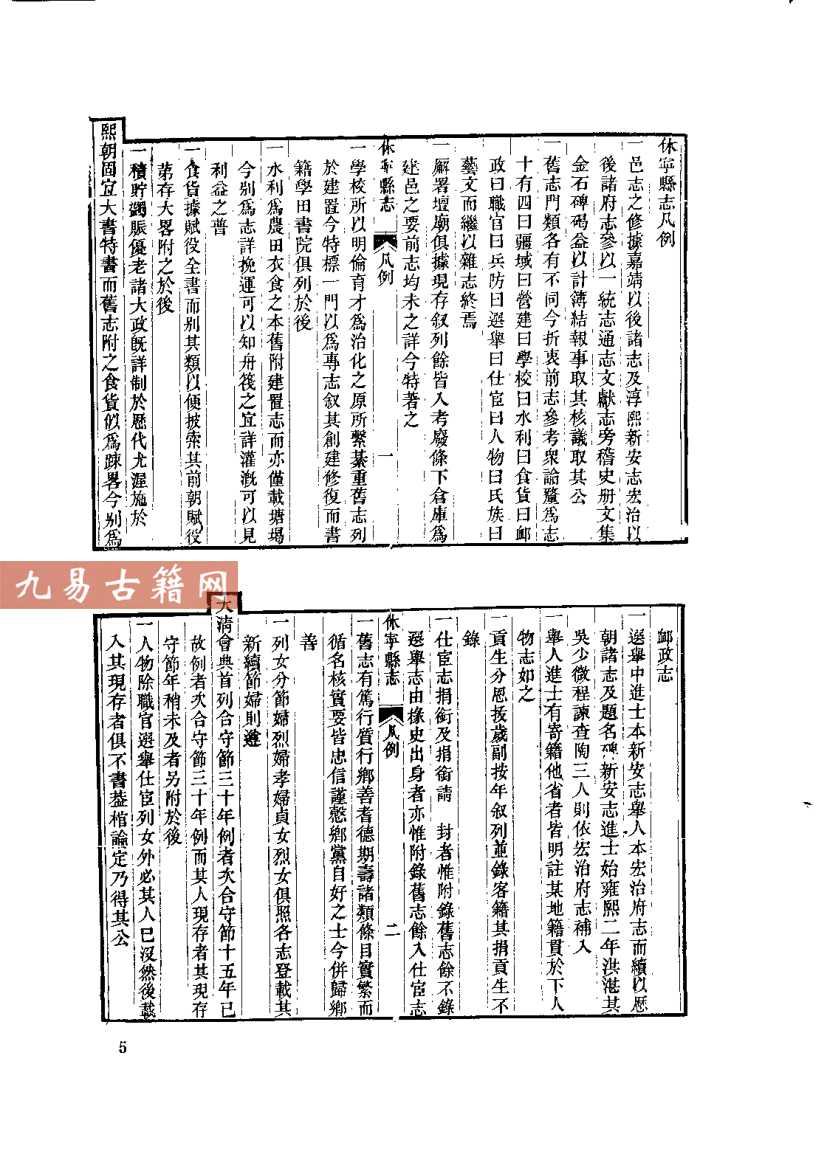 休寧縣志凡例
一邑志之修據嘉靖以後諸志及淳熙新安志宏治以
後諸府志參以一統志通志文獻志旁稽史册文集
金石碑碣益以計簿結報事取其核議取其公
一舊志門類各有不同今折衷前志參考衆論釐爲志
十有四曰疆域曰營建曰學校曰水利曰食貨曰䘏
政曰職官曰兵防曰選舉曰仕宦曰人物曰氏族曰
藝文而繼以雜志終焉
一廨署壇廟俱據現存叙列餘皆入考廢條下倉庫爲
建邑之要前志均未之詳今特著之
休寧縣志
凡例
一
一學校所以明倫育才爲治化之原所繫綦重舊志列
於建置今特標一門以爲專志叙其創建修復而書
籍學田書院俱列於後
一水利爲農田衣食之本舊附建置志而亦僅載塘堨
今别爲志詳挽運可以知舟筏之宜詳灌漑可以見
利益之普
一食貨據賦役全書而别其類以便披索其前朝賦役
第存大畧附之於後
一積貯蠲賑優老諸大政旣詳制於歷代尤渥施於
熙朝固宜大書特書而舊志附之食貨似爲疎畧今别爲
䘏政志
一選舉中進士本新安志舉人本宏治府志而續以歷
朝諸志及題名碑新安志進士始雍熙二年洪湛其
吳少微程諫查陶三人則依宏治府志補入
一舉人進士有寄籍他省者皆明註某地籍貫於下人
物志如之
一貢生分恩拔歲副按年叙列並錄客籍其捐貢生不
錄
一仕宦志捐銜及捐銜請 封者惟附錄舊志餘不錄
選舉志由掾史出身者亦惟附錄舊志餘入仕宦志
休寧縣志
凡例
二
一舊志有篤行質行鄉善耆德期壽諸類條目實繁而
循名核實要皆忠信謹慤鄉黨自好之士今併歸鄉
善
一列女分節婦烈婦孝婦貞女烈女俱照各志登載其
新續節婦則遵
大清會典首列合守節三十年例者次合守節十五年已
故例者次合守節三十年例而其人現存者其現存
守節年稍未及者另附於後
一人物除職官選舉仕宦列女外必其人已沒然後載
入其現存者俱不書葢棺論定乃得其公
5
九易古籍网